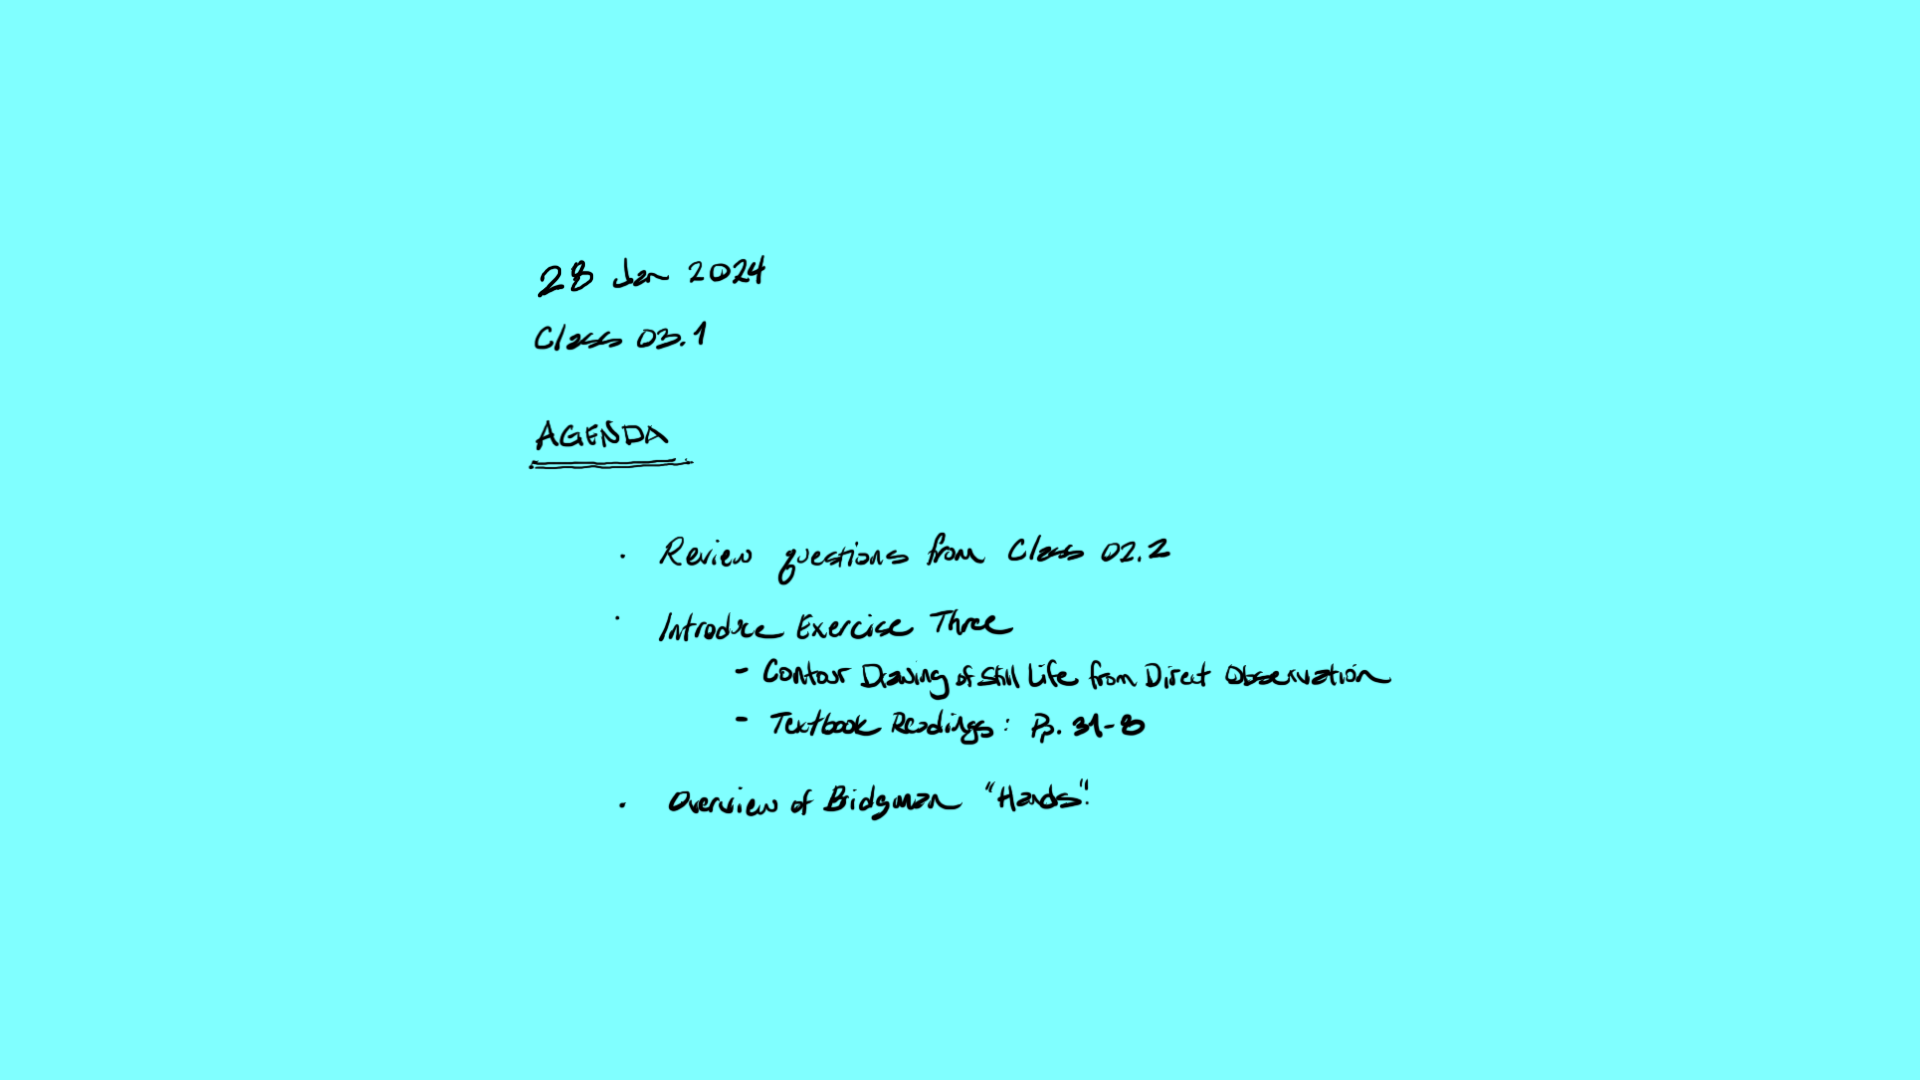 28 Jan 2024
Class 03.1
AGENDA
· Review questions from Class 02.2
· Introduce Exercise Three
- Contour Drawing of Still Life from Direct Observation
- Textbook Readings: Pp. 31-8
· Overview of Bridgman "Hands".